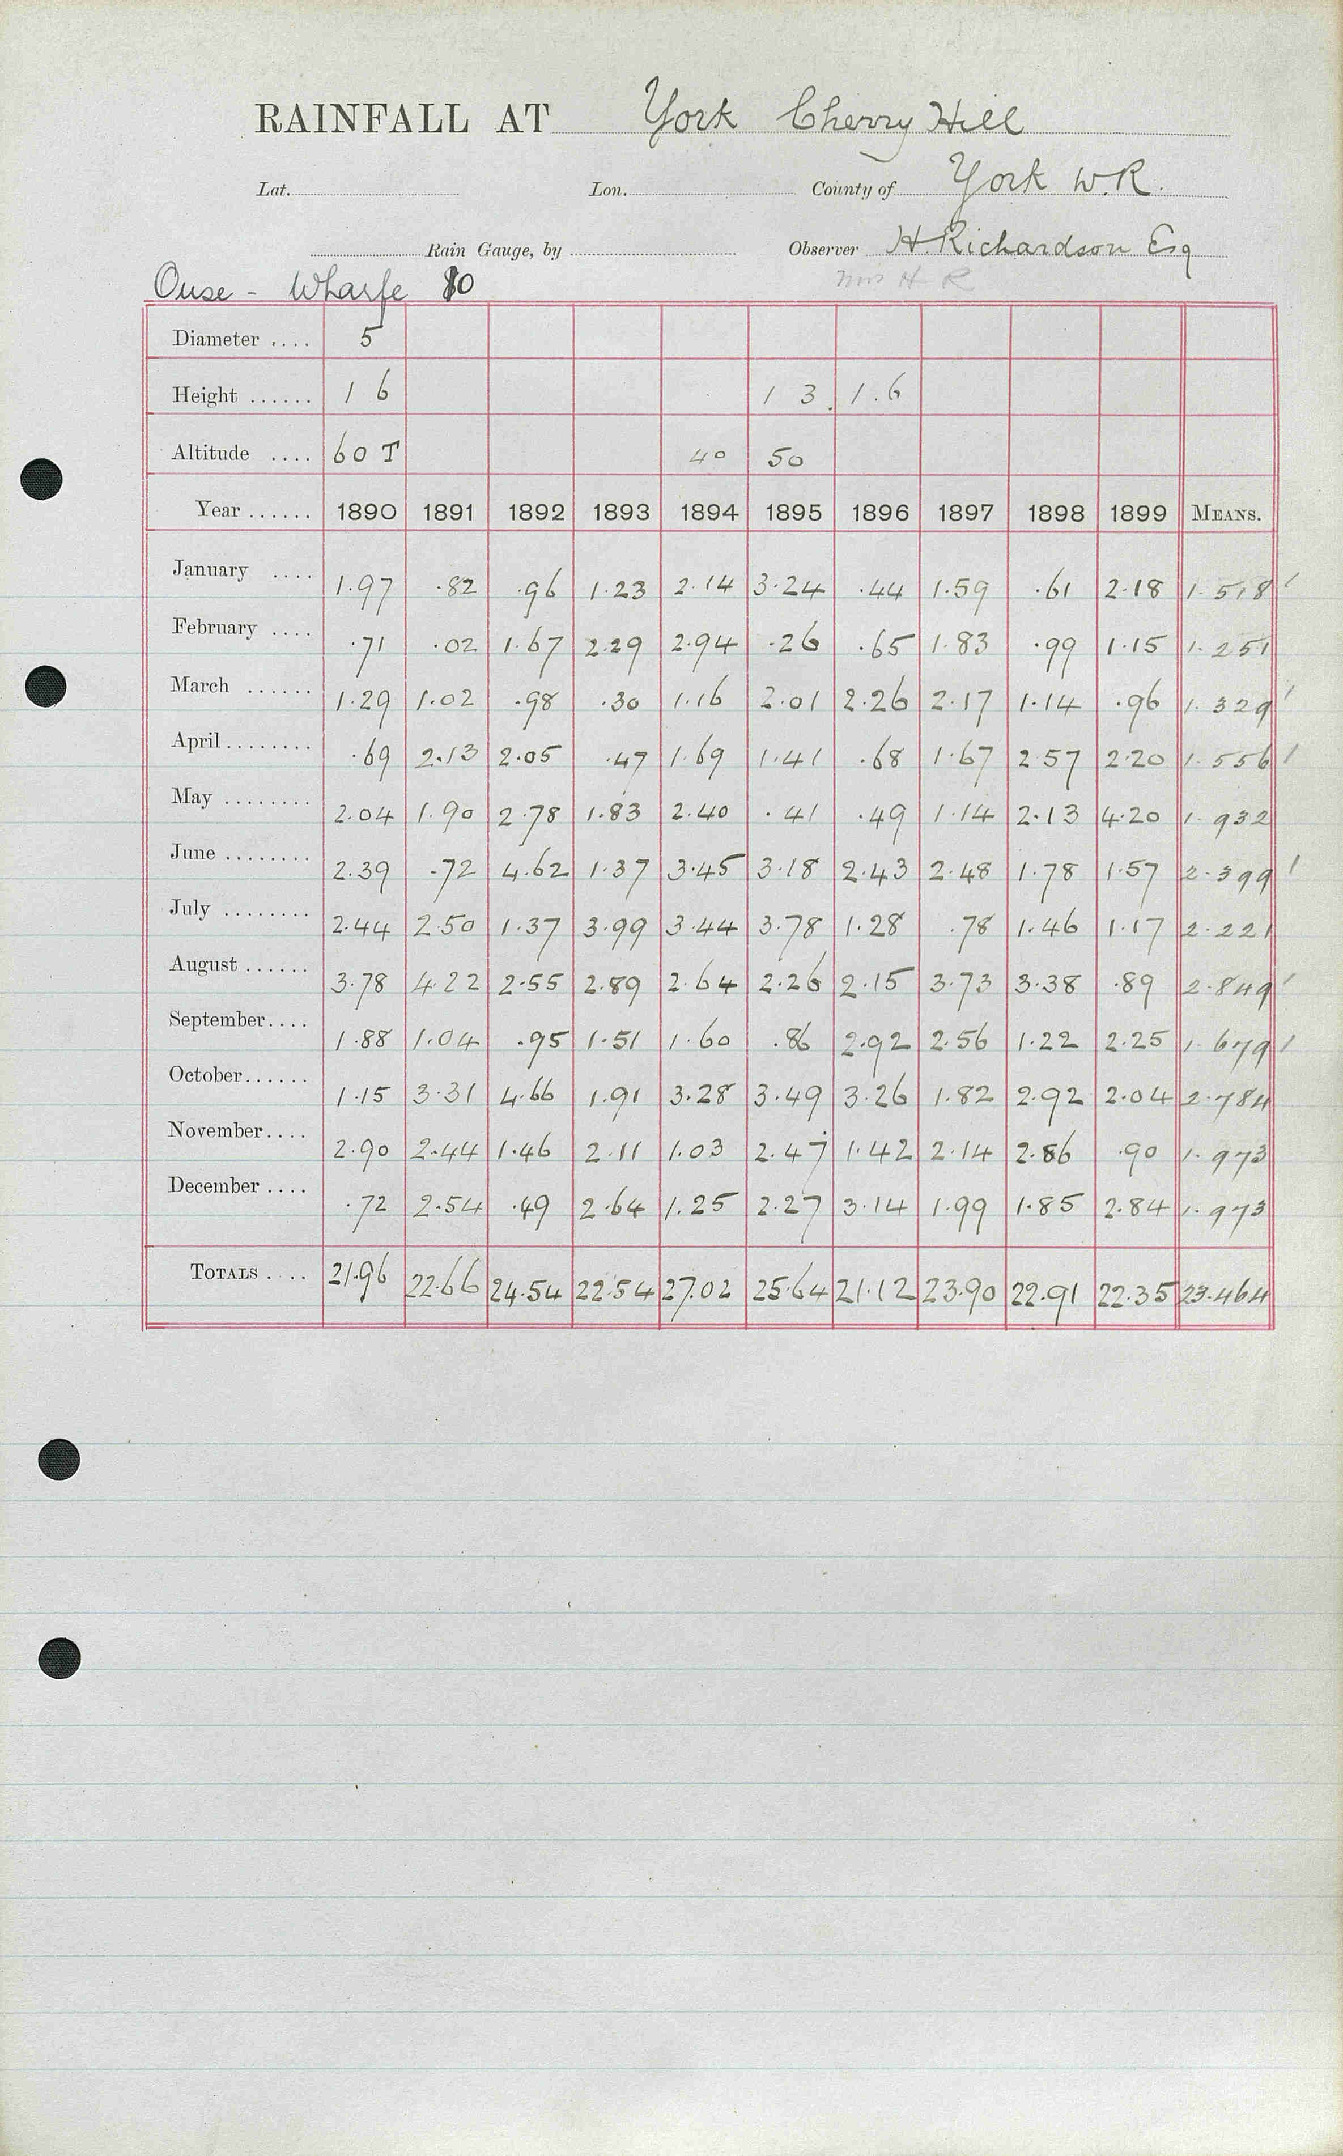 RAINFALL AT York Cherry Hill
Lat. Lon. County of York W.R.
Rain Gauge, by Observer H. Richardson Esq
Mrs H R
Ouse - Wharfe 10
Diameter .... 5
Height ...... 1 6 1 3 1.6
Altitude .... 60 T 40 50
Year ...... 1890 1891 1892 1893 1894 1895 1896 1897 1898 1899 MEANS.
January .... 1.97 .82 .96 1.23 2.14 3.24 .44 1.59 .61 2.18 1.518
February .... .71 .02 1.67 2.29 2.94 .26 .65 1.83 .99 1.15 1.251
March ...... 1.29 1.02 .98 .30 1.16 2.01 2.26 2.17 1.14 .96 1.329
April ........ .69 2.13 2.05 .47 1.69 1.41 .68 1.67 2.57 2.20 1.556
May ........ 2.04 1.90 2.78 1.83 2.40 .41 .49 1.14 2.13 4.20 1.932
June ........ 2.39 .72 4.62 1.37 3.45 3.18 2.43 2.48 1.78 1.57 2.399
July ........ 2.44 2.50 1.37 3.99 3.44 3.78 1.28 .78 1.46 1.17 2.221
August ...... 3.78 4.22 2.55 2.89 2.64 2.26 2.15 3.73 3.38 .89 2.849
September.... 1.88 1.04 .95 1.51 1.60 .86 2.92 2.56 1.22 2.25 1.679
October...... 1.15 3.31 4.66 1.91 3.28 3.49 3.26 1.82 2.92 2.04 2.784
November.... 2.90 2.44 1.46 2.11 1.03 2.47 1.42 2.14 2.86 .90 1.973
December .... .72 2.54 .49 2.64 1.25 2.27 3.14 1.99 1.85 2.84 1.973
TOTALS .... 21.96 22.66 24.54 22.54 27.02 25.64 21.12 23.90 22.91 22.35 23.464